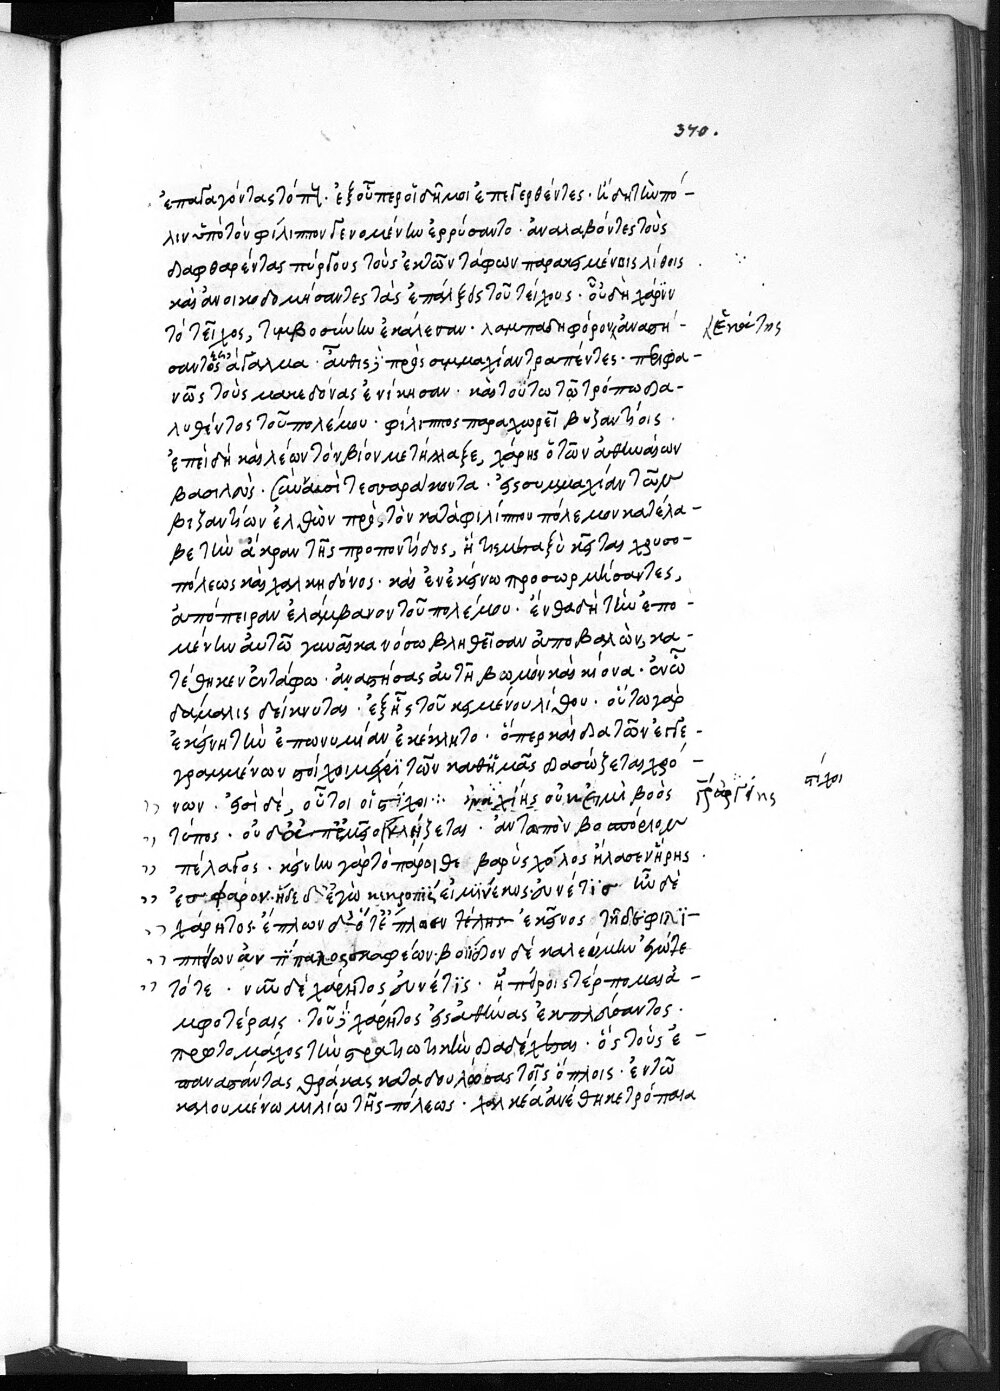 340.
ἐπαγαγόντας τὸ πῦρ. ἐξ οὗπερ οἱ δῆμοι ἐπεγερθέντες. ἤδη τὴν πό-
λιν ὑπὸ τὸν φίλιππον γενομένην ἐρρύσαντο. ἀναλαβόντες τοὺς
διαφθαρέντας πύργους τοῖς ἐκ τῶν τάφων παρακειμένοις λίθοις
καὶ ἀνοικοδομήσαντες τὰς ἐπάλξεις τοῦ τείχους. οὗ δὴ χάριν
τὸ τεῖχος, τυμβοσύνην ἐκάλεσαν. λαμπαδηφόρον ἀναστή-
Ἑκάτης
σαντες ἄγαλμα. αὖθις δὲ πρὸς συμμαχίαν τραπέντες. περιφα-
νῶς τοὺς μακεδόνας ἐνίκησαν. καὶ τούτω τῶ τρόπω δια-
λυθέντος τοῦ πολέμου. φίλιππος παραχωρεῖ βυζαντίοις.
ἐπειδὴ καὶ λέων τὸν βίον μετήλλαξε, χάρης ὁ τῶν ἀθηναίων
βασιλεὺς. σὺν ναυσὶ τεσσαράκοντα. εἰς συμμαχίαν τῶν
βυζαντίων ἐλθὼν πρὸς τὸν κατὰ φιλίππου πόλεμον κατέλα-
βε τὴν ἄκραν τῆς προποντίδος, ἥτις μεταξὺ κεῖται χρυσο-
πόλεως καὶ χαλκηδόνος. καὶ ἐν ἐκείνω προσορμήσαντες,
ἀπόπειραν ἐλάμβανον τοῦ πολέμου. ἔνθα δὴ τὴν ἑπο-
μένην αὐτῶ γυναῖκα νόσω βληθεῖσαν ἀποβαλὼν, κα-
τέθηκεν ἐν τάφω. ἀναστήσας αὐτῆ βωμὸν καὶ κίονα. ἐν ὧ
δάμαλις δείκνυται. ἐξ ἧς τοῦ κειμένου λίθου. οὕτω γὰρ
ἐκείνη τὴν ἐπωνυμίαν ἐκέκλητο. ὅπερ καὶ διὰ τῶν ἐγγε-
γραμμένων στίχοι μέχρι τῶν καθ' ἡμᾶς διασώζεται χρό-
νων. εἰσὶ δὲ, οὗτοι οἱ στίχοι: ἰναχίης οὐκ εἰμὶ βοὸς
στίχοι
τύπος. οὐδ' ἀπ' ἐμεῖο κλήζεται. ἀντωπὸν βοσπόριον
πέλαγος. κείνην γὰρ τὸ πάροιθε βαρὺς χόλος ἤλασεν ἥρης
ἐς φάρον. ἥδε δ' ἐγὼ κεκροπίς εἰμι νέκυς. εὐνέτις ἦν δὲ
χάρητος. ἔπλων δ' ὅτ' ἔπλωεν ἐκεῖνος τῆδε φιλιπ-
πείων σκαφέων. βοίδιον δὲ καλεύμην ἐγώγε
τότε. νῦν δὲ χάρητος εὐνέτις. ἠπείροις τέρπομαι ἀ-
μφοτέραις. τοῦ δὲ χάρητος εἰς ἀθήνας ἐκπλεύσαντος.
πρωτομάχος τὴν στρατιωτικὴν διαδέχεται. ὃς τοὺς ἐ-
παναστάντας θρᾶκας καταδουλώσας τοῖς ὅπλοις. ἐν τῶ
καλουμένω μιλίω τῆς πόλεως. χαλκέα ἀνέθηκε τρόπαια